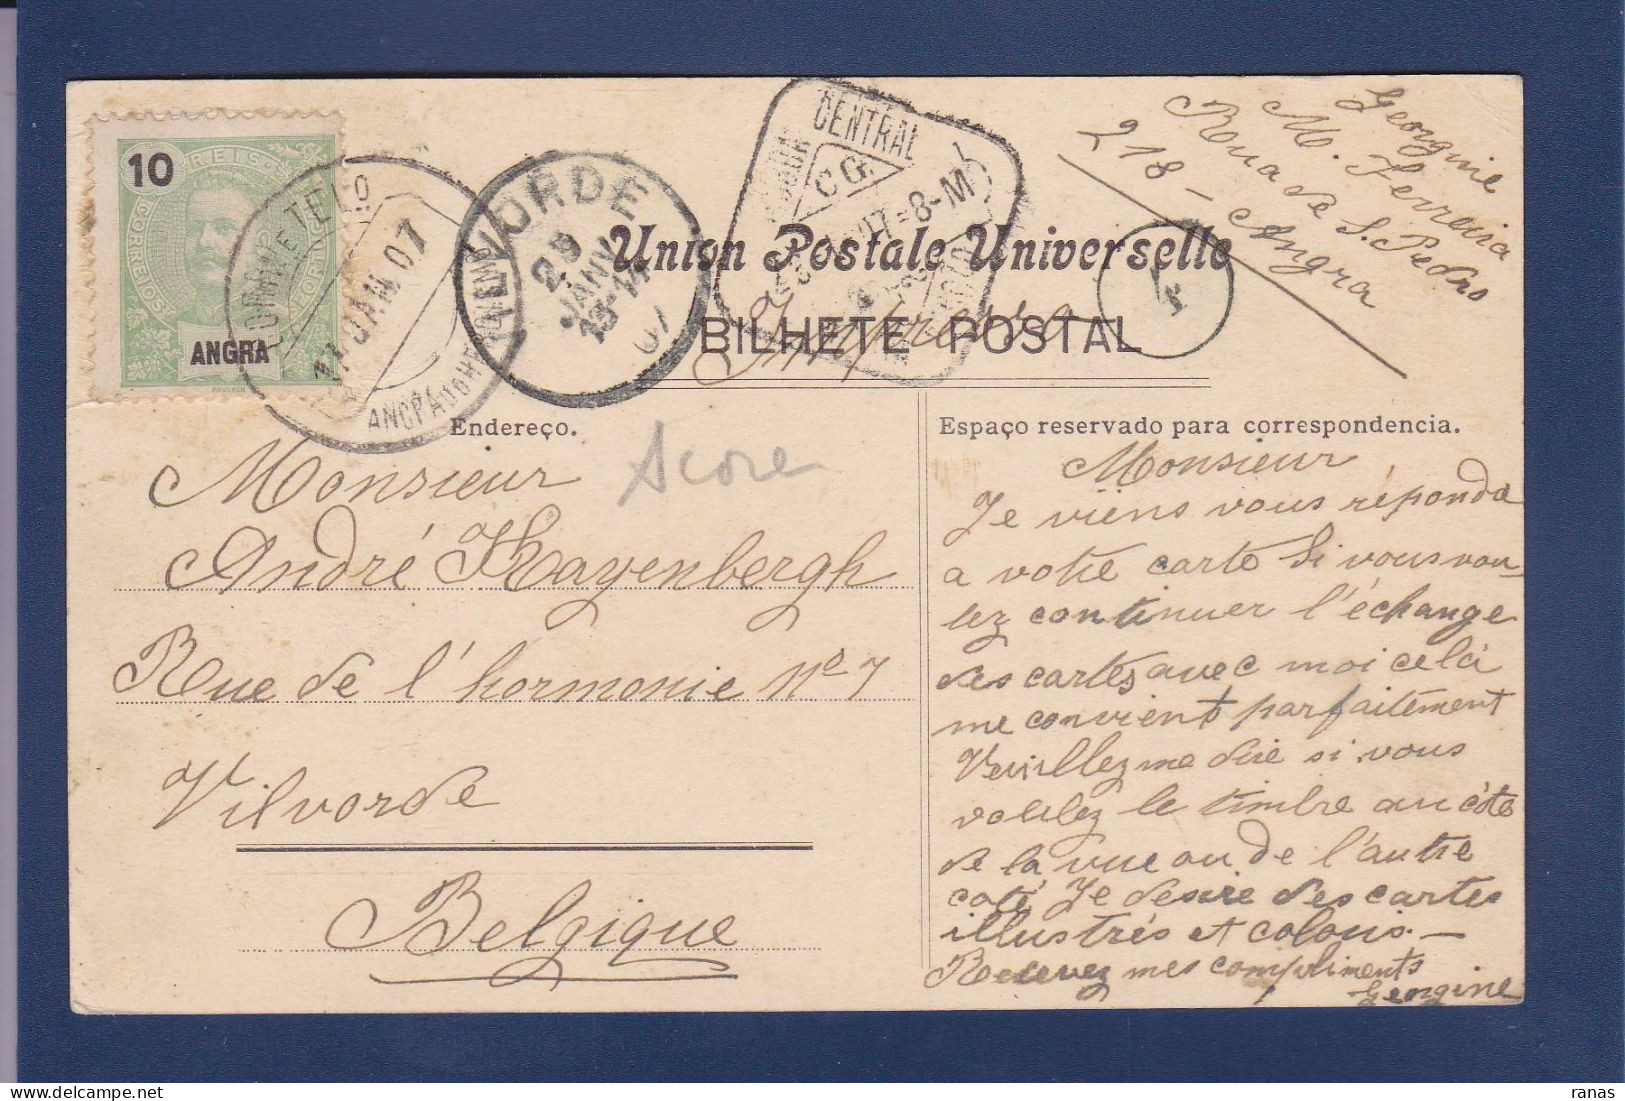 10
REIS
CORREIOS
PORTUGAL
ANGRA
CORR E TELO
JAN 07
VILVORDE
29
JANV
13-14
07
CENTRAL
C.G.
8-M
4
Georgine
M. Ferreira
Rua de S. Pedro
218 - Angra
Union Postale Universelle
BILHETE POSTAL
Endereço.
Espaço reservado para correspondencia.
Acore
Monsieur
André Hayenbergh
Rue de l'hormonie nº 7
Vilvorde
Belgique
Monsieur
Je viens vous réponda
a votre carte Si vous vou-
lez continuer l'échange
des cartes avec moi celà
me convient parfaitement
Veuillez me dire si vous
voulez le timbre au côté
de la vue ou de l'autre
coté, Je desire des cartes
illustrés et coloris. —
Recevez mes compliments
Georgine
ranas